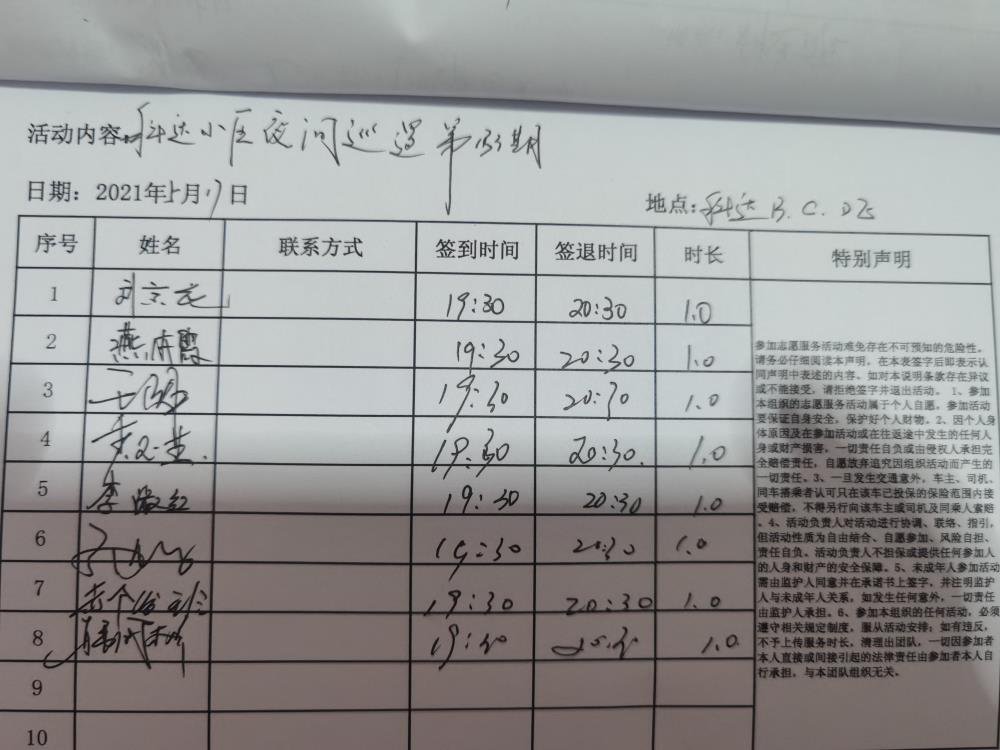 活动内容:科达小区夜间巡逻第133期
日期：2021年5月17日
地点:科达B.C.D区
序号 姓名 联系方式 签到时间 签退时间 时长 特别声明
1 19:30 20:30 1.0
2 19:30 20:30 1.0
3 19:30 20:30 1.0
4 19:30 20:30. 1.0
5 李 红 19:30 20:30 1.0
6 19:30 20:30 1.0
7 19:30 20:30 1.0
8 19:30 20:30 1.0
9
10
参加志愿服务活动难免存在不可预知的危险性。
请务必仔细阅读本声明，在本表签字后即表示认
同声明中表述的内容。如对本说明条款存在异议
或不能接受，请拒绝签字并退出活动。 1、参加
本组织的志愿服务活动属于个人自愿。参加活动
要保证自身安全，保护好个人财物。2、因个人身
体原因及在参加活动或在往返途中发生的任何人
身或财产损害，一切责任自负或由侵权人承担完
全赔偿责任，自愿放弃追究因组织活动而产生的
一切责任。3、一旦发生交通意外，车主、司机、
同车搭乘者认可只在该车已投保的保险范围内接
受赔偿，不得另行向该车主或司机及同乘人索赔
。4、活动负责人对活动进行协调、联络、指引，
但活动性质为自由结合、自愿参加、风险自担、
责任自负。活动负责人不担保或提供任何参加人
的人身和财产的安全保障。5、未成年人参加活动
需由监护人同意并在承诺书上签字，并注明监护
人与未成年人关系，如发生任何意外，一切责任
由监护人承担。6、参加本组织的任何活动，必须
遵守相关规定制度，服从活动安排；如有违反，
不予上传服务时长，清理出团队，一切因参加者
本人直接或间接引起的法律责任由参加者本人自
行承担，与本团队组织无关。